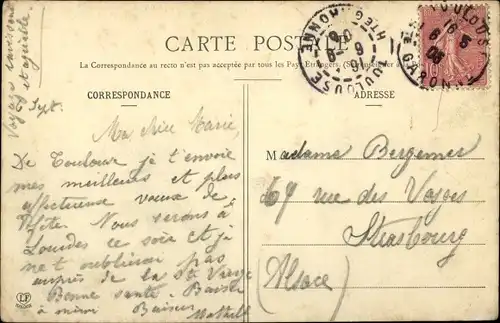 Voyage ravissant
et agréable
CARTE POSTALE
La Correspondance au recto n'est pas acceptée par tous les Pays Etrangers. (Se renseigner à la
CORRESPONDANCE
ADRESSE
TOULOUSE
HTE GARONNE
6 Sept.
Ma chère Marie,
De Toulouse je t'envoie
mes meilleurs et plus
affectueux vœux de
fête. Nous serons à
Lourdes ce soir et je
ne t'oublierai pas
auprès de la Ste Vierge
Bonne santé. Baiser
à
Baisers
Madame Bergerner
69 rue des Vosges
Strasbourg
(Alsace)
LF